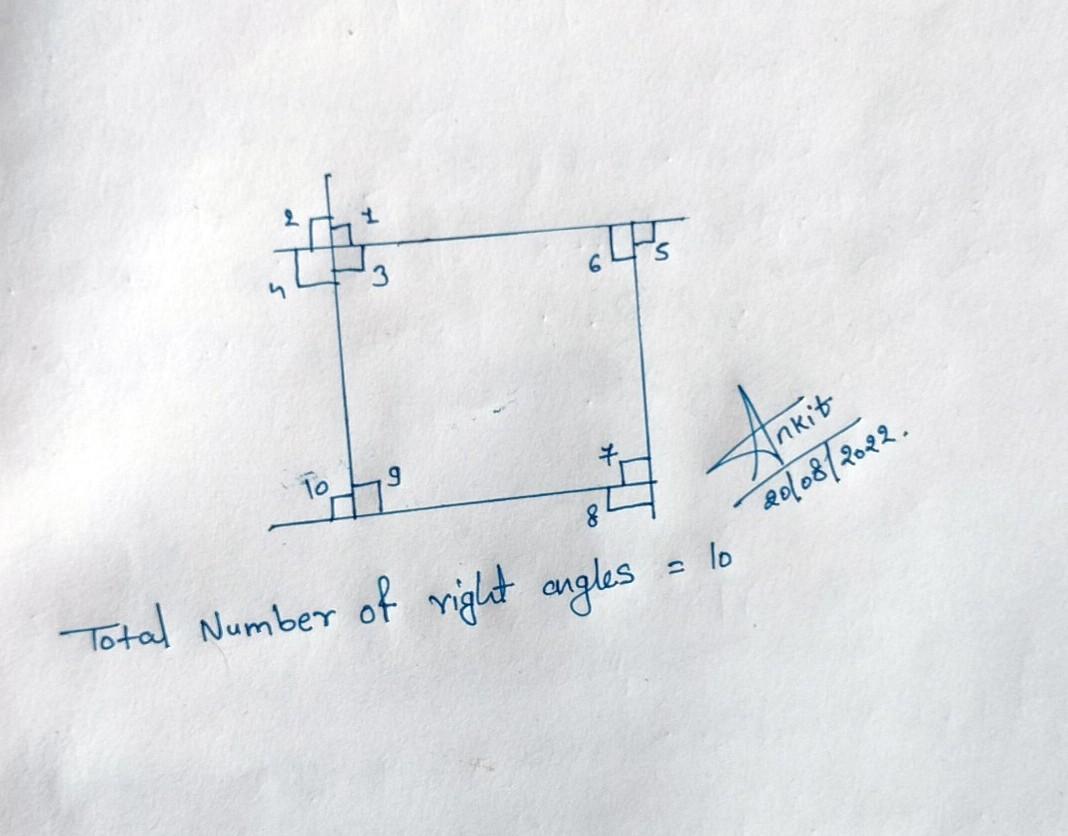 2 1
4 3
6 5
7
8
10 9
Ankit
20/08/2022.
Total Number of right angles = 10